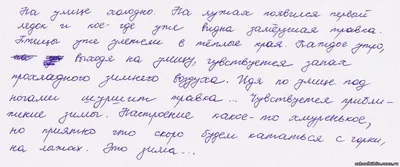 На улице холодно. На лужах появился первый
ледок и кое-где уже видна замёрзшая травка.
Птицы уже улетели в тёплые края. Каждое утро,
выходя на улицу, чувствуется запах
прохладного зимнего воздуха. Идя по улице под
ногами шуршит травка... Чувствуется прибли-
жение зимы. Настроение какое-то хмуренькое,
но приятно что скоро будем кататься с горки,
на лыжах. Это зима...